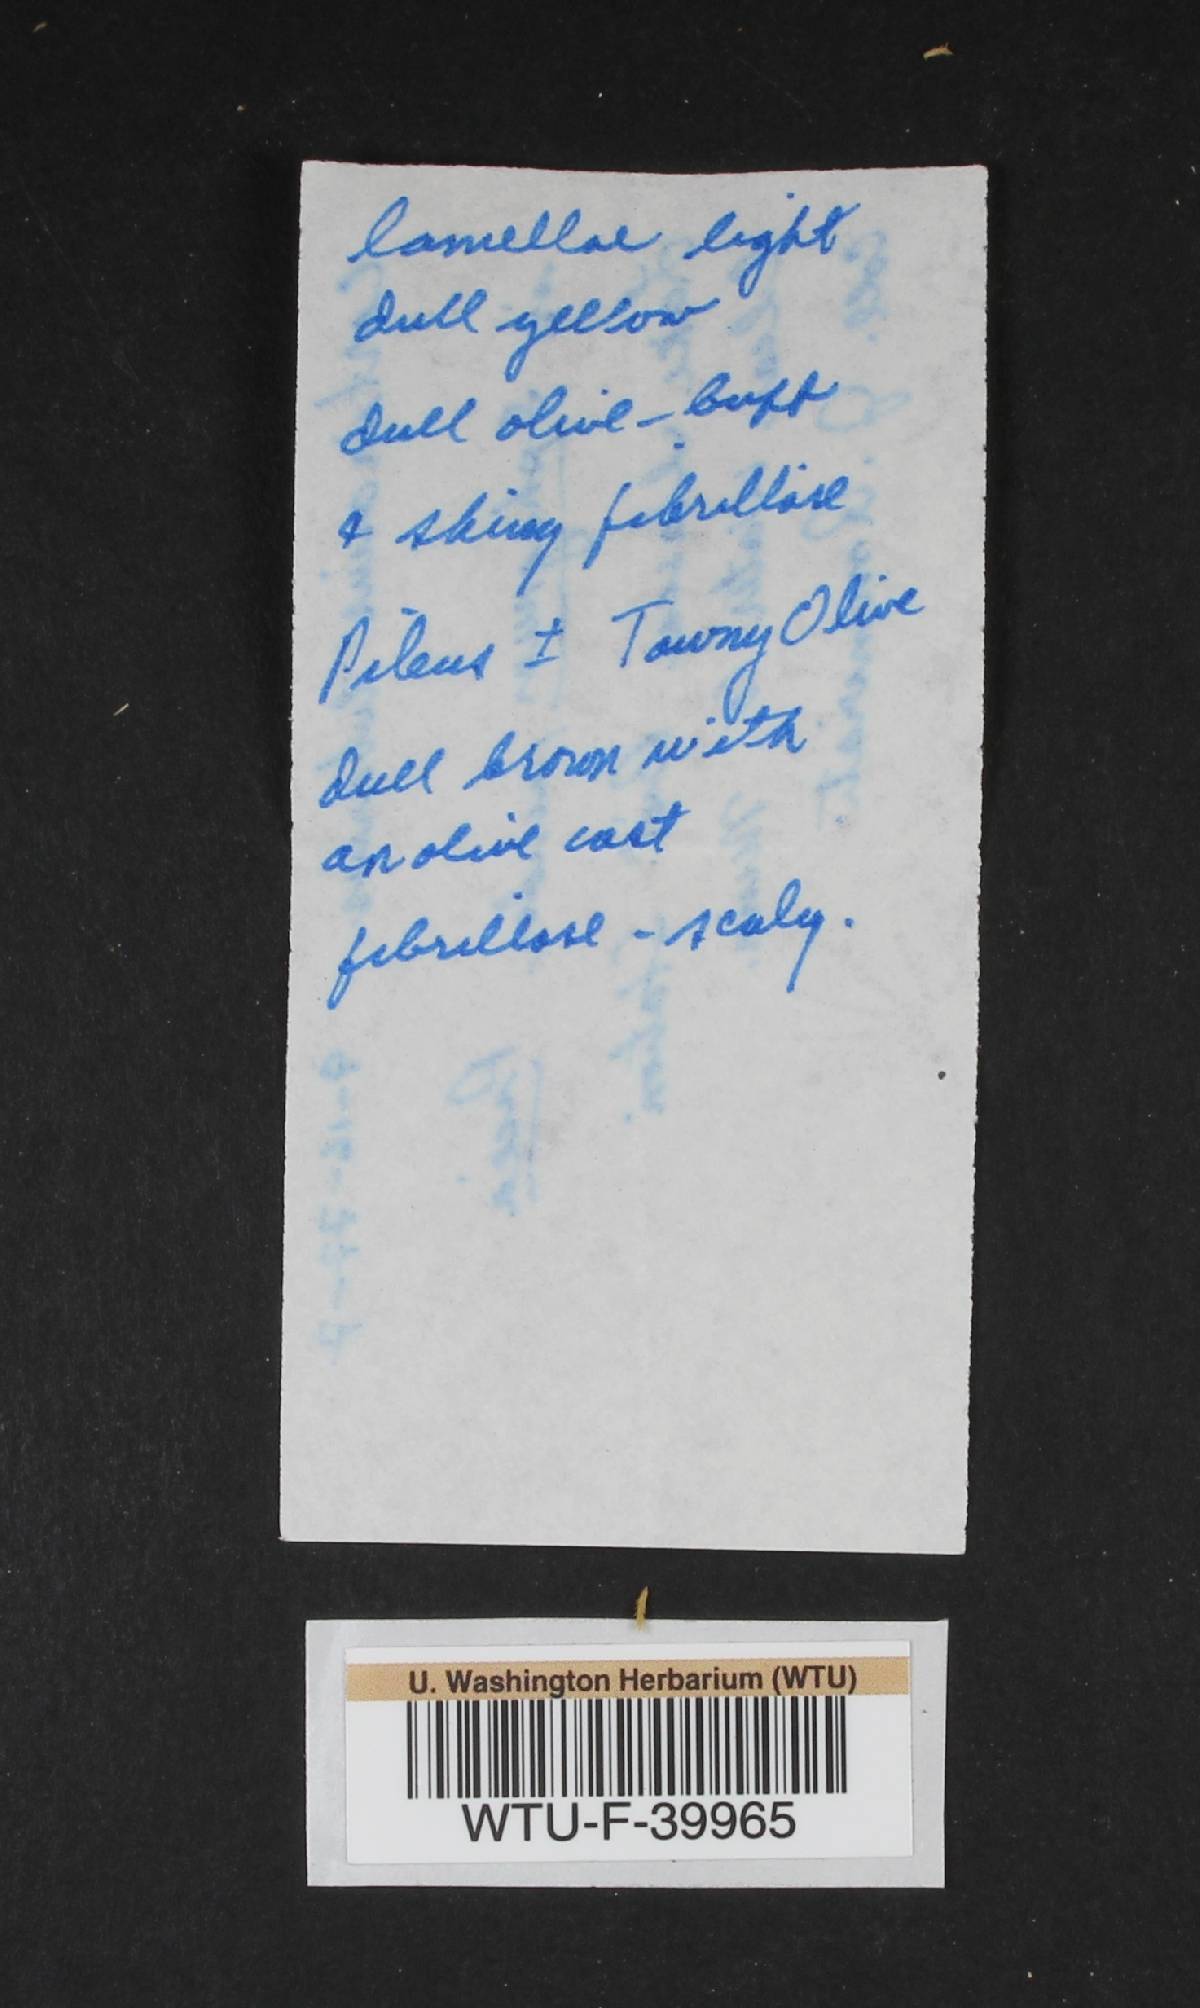 lamellae light
dull yellow
dull olive-buff
& shiny fibrillose
Pileus ± Tawny Olive
dull brown with
an olive cast
fibrillose - scaly.
U. Washington Herbarium (WTU)
WTU-F-39965